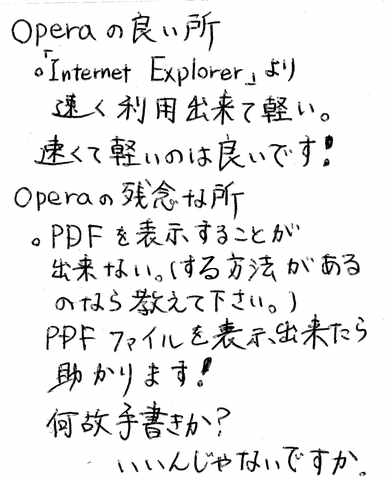 Operaの良い所
。「Internet Explorer」より
速く利用出来て軽い。
速くて軽いのは良いです!
Operaの残念な所
。PDFを表示することが
出来ない。(する方法がある
のなら教えて下さい。)
PDFファイルを表示出来たら
助かります!
何故手書きか?
いいんじゃないですか。